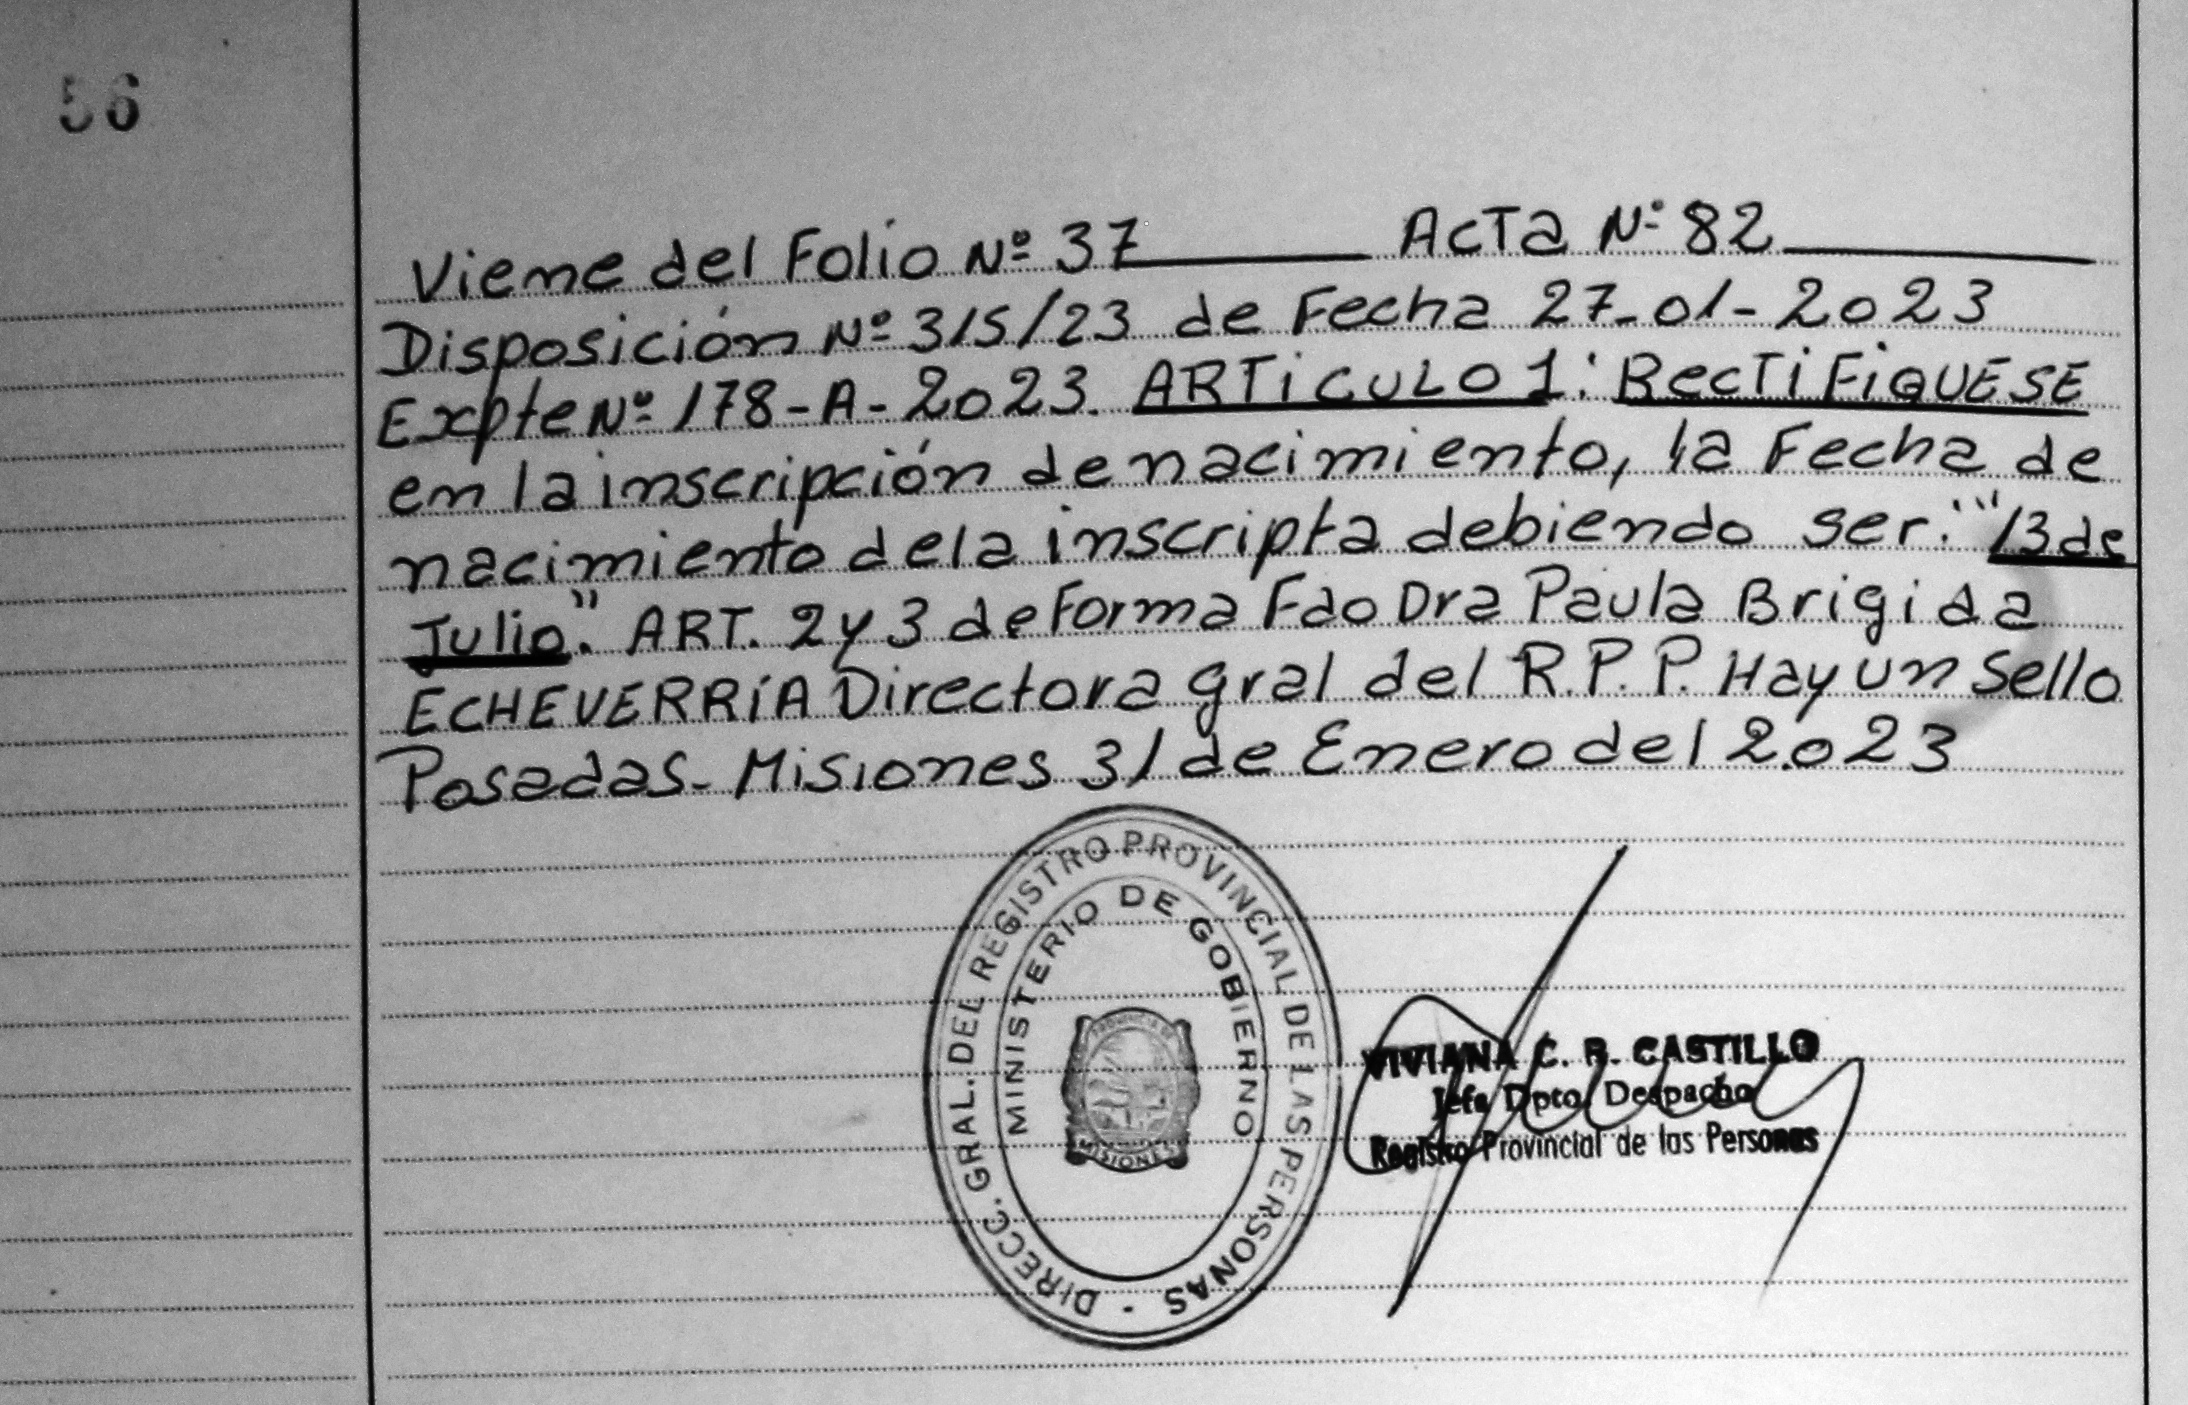 56
Viene del Folio Nº 37 Acta Nº 82
Disposición Nº 315/23 de Fecha 27-01-2023
Expte Nº 178-A-2023. ARTiCULO 1: RecTiFiQUESE
en la inscripción de nacimiento, la Fecha de
nacimiento dela inscripta debiendo ser: "13 de
Julio". ART. 2 y 3 de Forma Fdo Dra Paula Brigida
ECHEVERRíA Directora gral del R.P.P. Hay un Sello
Posadas- Misiones 31 de Enero del 2023
DIRECC. GRAL. DEL REGISTRO PROVINCIAL DE LAS PERSONAS -
MINISTERIO DE GOBIERNO
PROVINCIA DE
MISIONES
VIVIANA C. R. CASTILLO
Jefa Dpto. Despacho
Registro Provincial de las Personas